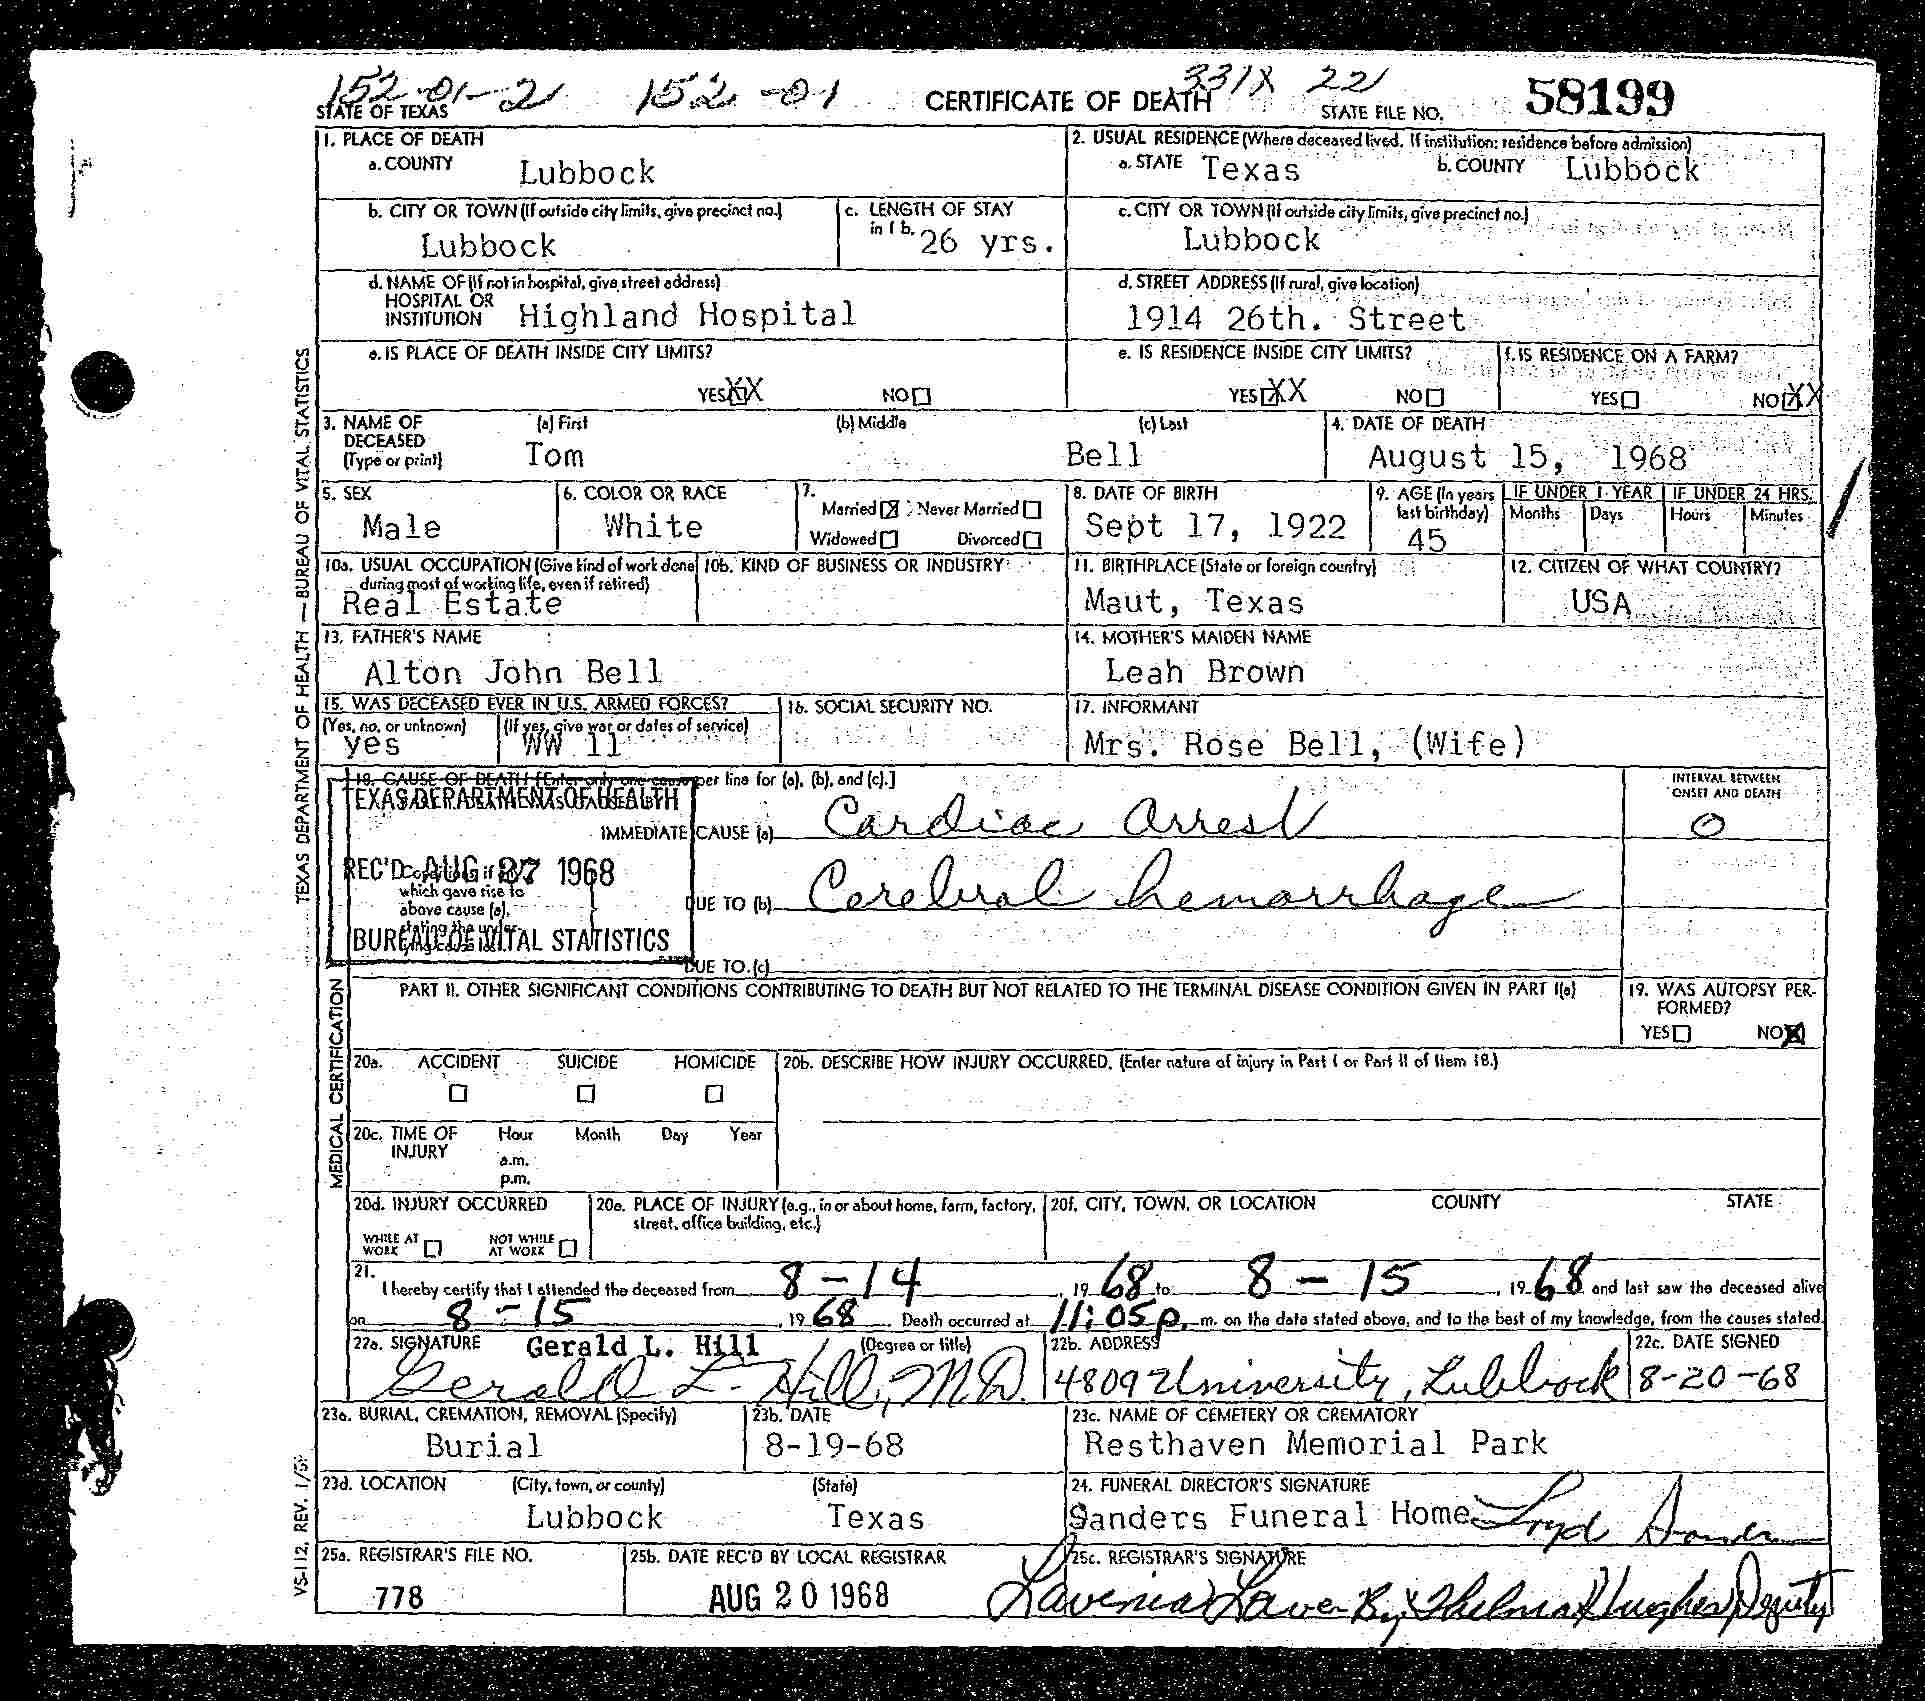 152-01-2 152-01 331X 22
STATE OF TEXAS CERTIFICATE OF DEATH STATE FILE NO. 58199
1. PLACE OF DEATH
a. COUNTY Lubbock
2. USUAL RESIDENCE (Where deceased lived. If institution: residence before admission)
a. STATE Texas b. COUNTY Lubbock
b. CITY OR TOWN (If outside city limits, give precinct no.)
Lubbock
c. LENGTH OF STAY
in 1 b. 26 yrs.
c. CITY OR TOWN (If outside city limits, give precinct no.)
Lubbock
d. NAME OF (If not in hospital, give street address)
HOSPITAL OR
INSTITUTION Highland Hospital
d. STREET ADDRESS (If rural, give location)
1914 26th. Street
e. IS PLACE OF DEATH INSIDE CITY LIMITS?
YES XX NO
e. IS RESIDENCE INSIDE CITY LIMITS?
YES XX NO
f. IS RESIDENCE ON A FARM?
YES NO XX
3. NAME OF
DECEASED
(Type or print)
(a) First (b) Middle (c) Last
Tom Bell
4. DATE OF DEATH
August 15, 1968
5. SEX
Male
6. COLOR OR RACE
White
7.
Married X Never Married
Widowed Divorced
8. DATE OF BIRTH
Sept 17, 1922
9. AGE (In years
last birthday)
45
IF UNDER 1 YEAR
Months Days
IF UNDER 24 HRS.
Hours Minutes
10a. USUAL OCCUPATION (Give kind of work done
during most of working life, even if retired)
Real Estate
10b. KIND OF BUSINESS OR INDUSTRY
11. BIRTHPLACE (State or foreign country)
Maut, Texas
12. CITIZEN OF WHAT COUNTRY?
USA
13. FATHER'S NAME
Alton John Bell
14. MOTHER'S MAIDEN NAME
Leah Brown
15. WAS DECEASED EVER IN U.S. ARMED FORCES?
(Yes, no, or unknown) (If yes, give war or dates of service)
yes WW 11
16. SOCIAL SECURITY NO.
17. INFORMANT
Mrs. Rose Bell, (Wife)
18. CAUSE OF DEATH [Enter only one cause per line for (a), (b), and (c).]
INTERVAL BETWEEN
ONSET AND DEATH
TEXAS DEPARTMENT OF HEALTH
IMMEDIATE CAUSE (a) Cardiac Arrest 0
REC'D AUG 27 1968
Conditions, if any,
which gave rise to
above cause (a),
stating the under-
lying cause last.
DUE TO (b) Cerebral hemorrhage
BUREAU OF VITAL STATISTICS
DUE TO (c)
PART II. OTHER SIGNIFICANT CONDITIONS CONTRIBUTING TO DEATH BUT NOT RELATED TO THE TERMINAL DISEASE CONDITION GIVEN IN PART I(a)
19. WAS AUTOPSY PER-
FORMED?
YES NO X
20a. ACCIDENT SUICIDE HOMICIDE
20b. DESCRIBE HOW INJURY OCCURRED. (Enter nature of injury in Part I or Part II of Item 18.)
20c. TIME OF
INJURY
Hour Month Day Year
a.m.
p.m.
20d. INJURY OCCURRED
WHILE AT
WORK
NOT WHILE
AT WORK
20e. PLACE OF INJURY (e.g., in or about home, farm, factory,
street, office building, etc.)
20f. CITY, TOWN, OR LOCATION COUNTY STATE
21.
I hereby certify that I attended the deceased from 8-14, 1968 to 8-15, 1968 and last saw the deceased alive
on 8-15, 1968. Death occurred at 11:05 p. m. on the date stated above, and to the best of my knowledge, from the causes stated.
22a. SIGNATURE Gerald L. Hill (Degree or title)
Gerald L. Hill, M.D.
22b. ADDRESS
4809 University, Lubbock
22c. DATE SIGNED
8-20-68
23a. BURIAL, CREMATION, REMOVAL (Specify)
Burial
23b. DATE
8-19-68
23c. NAME OF CEMETERY OR CREMATORY
Resthaven Memorial Park
23d. LOCATION (City, town, or county) (State)
Lubbock Texas
24. FUNERAL DIRECTOR'S SIGNATURE
Sanders Funeral Home
25a. REGISTRAR'S FILE NO.
778
25b. DATE REC'D BY LOCAL REGISTRAR
AUG 20 1968
25c. REGISTRAR'S SIGNATURE
Lavenia By Thelma Hughes, Deputy
TEXAS DEPARTMENT OF HEALTH — BUREAU OF VITAL STATISTICS
MEDICAL CERTIFICATION
VS-112, REV. 1/58